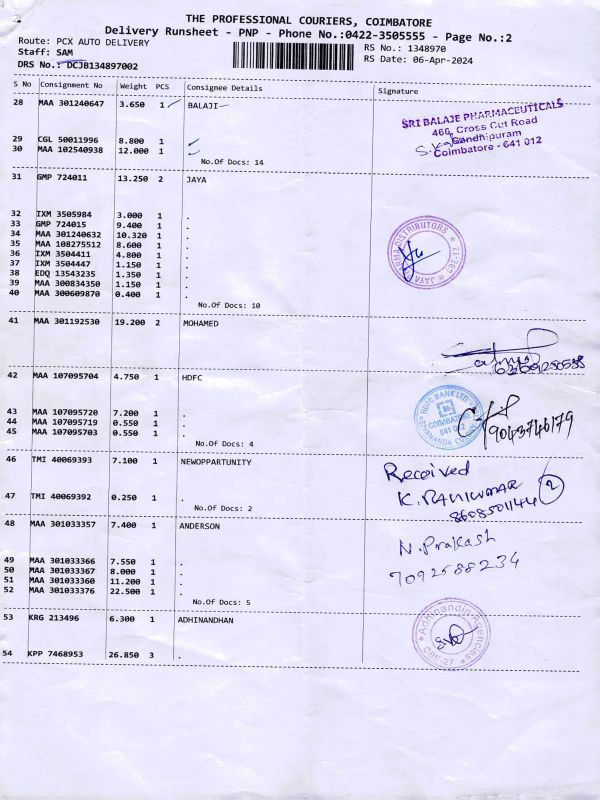 THE PROFESSIONAL COURIERS, COIMBATORE
Delivery Runsheet - PNP - Phone No.:0422-3505555 - Page No.:2
Route: PCX AUTO DELIVERY
RS No.: 1348970
Staff: SAM
RS Date: 06-Apr-2024
DRS No.: DCJB134897002
S No Consignment No Weight PCS Consignee Details Signature
28 MAA 301240647 3.650 1 BALAJI
SRI BALAJE PHARMACEUTICALS
466, Cross Cut Road
Gandhipuram
Coimbatore - 641 012
29 CGL 50011996 8.800 1
30 MAA 102540938 12.000 1
No.Of Docs: 14
31 GMP 724011 13.250 2 JAYA
32 IXM 3505984 3.000 1 .
33 GMP 724015 9.400 1 .
34 MAA 301240632 10.320 1 .
35 MAA 108275512 8.600 1 .
36 IXM 3504411 4.800 1 .
37 IXM 3504447 1.150 1 .
38 EDQ 13543235 1.350 1 .
39 MAA 300834350 1.150 1 .
40 MAA 300609870 0.400 1 .
DISTRIBUTORS
CBE-12
No.Of Docs: 10
41 MAA 301192530 19.200 2 MOHAMED
42 MAA 107095704 4.750 1 HDFC
HDFC BANK LTD.
COIMBATORE
641 012
9043746179
43 MAA 107095720 7.200 1 .
44 MAA 107095719 0.550 1 .
45 MAA 107095703 0.550 1 .
No.Of Docs: 4
46 TMI 40069393 7.100 1 NEWOPPARTUNITY
Received
K. RAVIKUMAR
2
47 TMI 40069392 0.250 1 .
No.Of Docs: 2
48 MAA 301033357 7.400 1 ANDERSON
N. Prakash
7092588234
49 MAA 301033366 7.550 1 .
50 MAA 301033367 8.000 1 .
51 MAA 301033360 11.200 1 .
52 MAA 301033376 22.500 1 .
No.Of Docs: 5
53 KRG 213496 6.300 1 ADHINANDHAN
Adhinandin Agencies
CBE-27
54 KPP 7468953 26.850 3 .